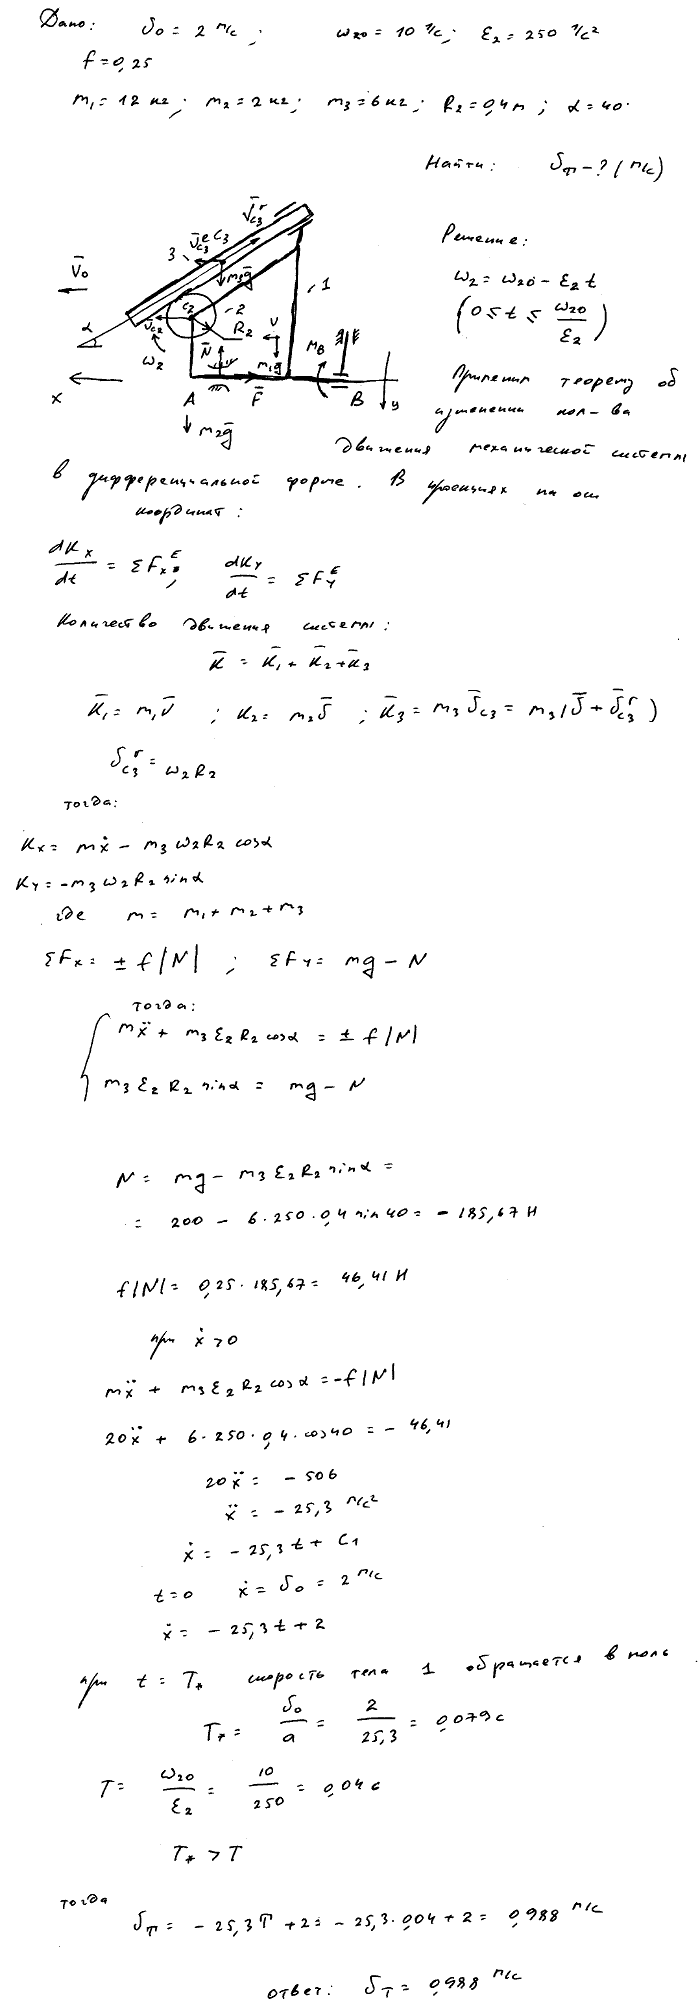 Дано: υ₀ = 2 м/с; ω₂₀ = 10 1/с; ε₂ = 250 1/с²
f = 0,25
m₁ = 12 кг; m₂ = 2 кг; m₃ = 6 кг; R₂ = 0,4 м; α = 40°
Найти: υ_T - ? (м/с)
Решение:
ω₂ = ω₂₀ - ε₂t
(0 ≤ t ≤ ω₂₀/ε₂)
V̄₀
V̄ʳ_C3
V̄ᵉ_C3
C₃
3
m₃ḡ
1
α
C₂
2
V̄_C2
R₂
ω₂
N̄
V
m₁ḡ
M_B
x
A
F̄
B
y
m₂ḡ
Применим теорему об
изменении кол-ва
движения механической системы
в дифференциальной форме. В проекциях на оси
координат:
dKx/dt = ΣFxᴱ; dKy/dt = ΣFyᴱ
Количество движения системы:
K̄ = K̄₁ + K̄₂ + K̄₃
K̄₁ = m₁ῡ ; K₂ = m₂ῡ ; K̄₃ = m₃ῡ_C3 = m₃(ῡ + ῡʳ_C3)
υʳ_C3 = ω₂R₂
тогда:
Kx = mẋ - m₃ω₂R₂cosα
Ky = -m₃ω₂R₂sinα
где m = m₁ + m₂ + m₃
ΣFx = ± f|N| ; ΣFy = mg - N
тогда:
mẍ + m₃ε₂R₂cosα = ± f|N|
m₃ε₂R₂sinα = mg - N
N = mg - m₃ε₂R₂sinα =
= 200 - 6·250·0,4 sin40 = - 185,67 Н
f|N| = 0,25·185,67 = 46,41 Н
при ẋ > 0
mẍ + m₃ε₂R₂cosα = -f|N|
20ẍ + 6·250·0,4·cos40 = - 46,41
20ẍ = - 506
ẍ = - 25,3 м/с²
ẋ = - 25,3t + C₁
t=0 ẋ = υ₀ = 2 м/с
ẋ = - 25,3t + 2
при t = T* скорость тела 1 обращается в ноль
T* = υ₀/a = 2/25,3 = 0,079 с
T = ω₂₀/ε₂ = 10/250 = 0,04 с
T* > T
тогда
υ_T = - 25,3T + 2 = - 25,3·0,04 + 2 = 0,988 м/с
ответ: υ_T = 0,988 м/с